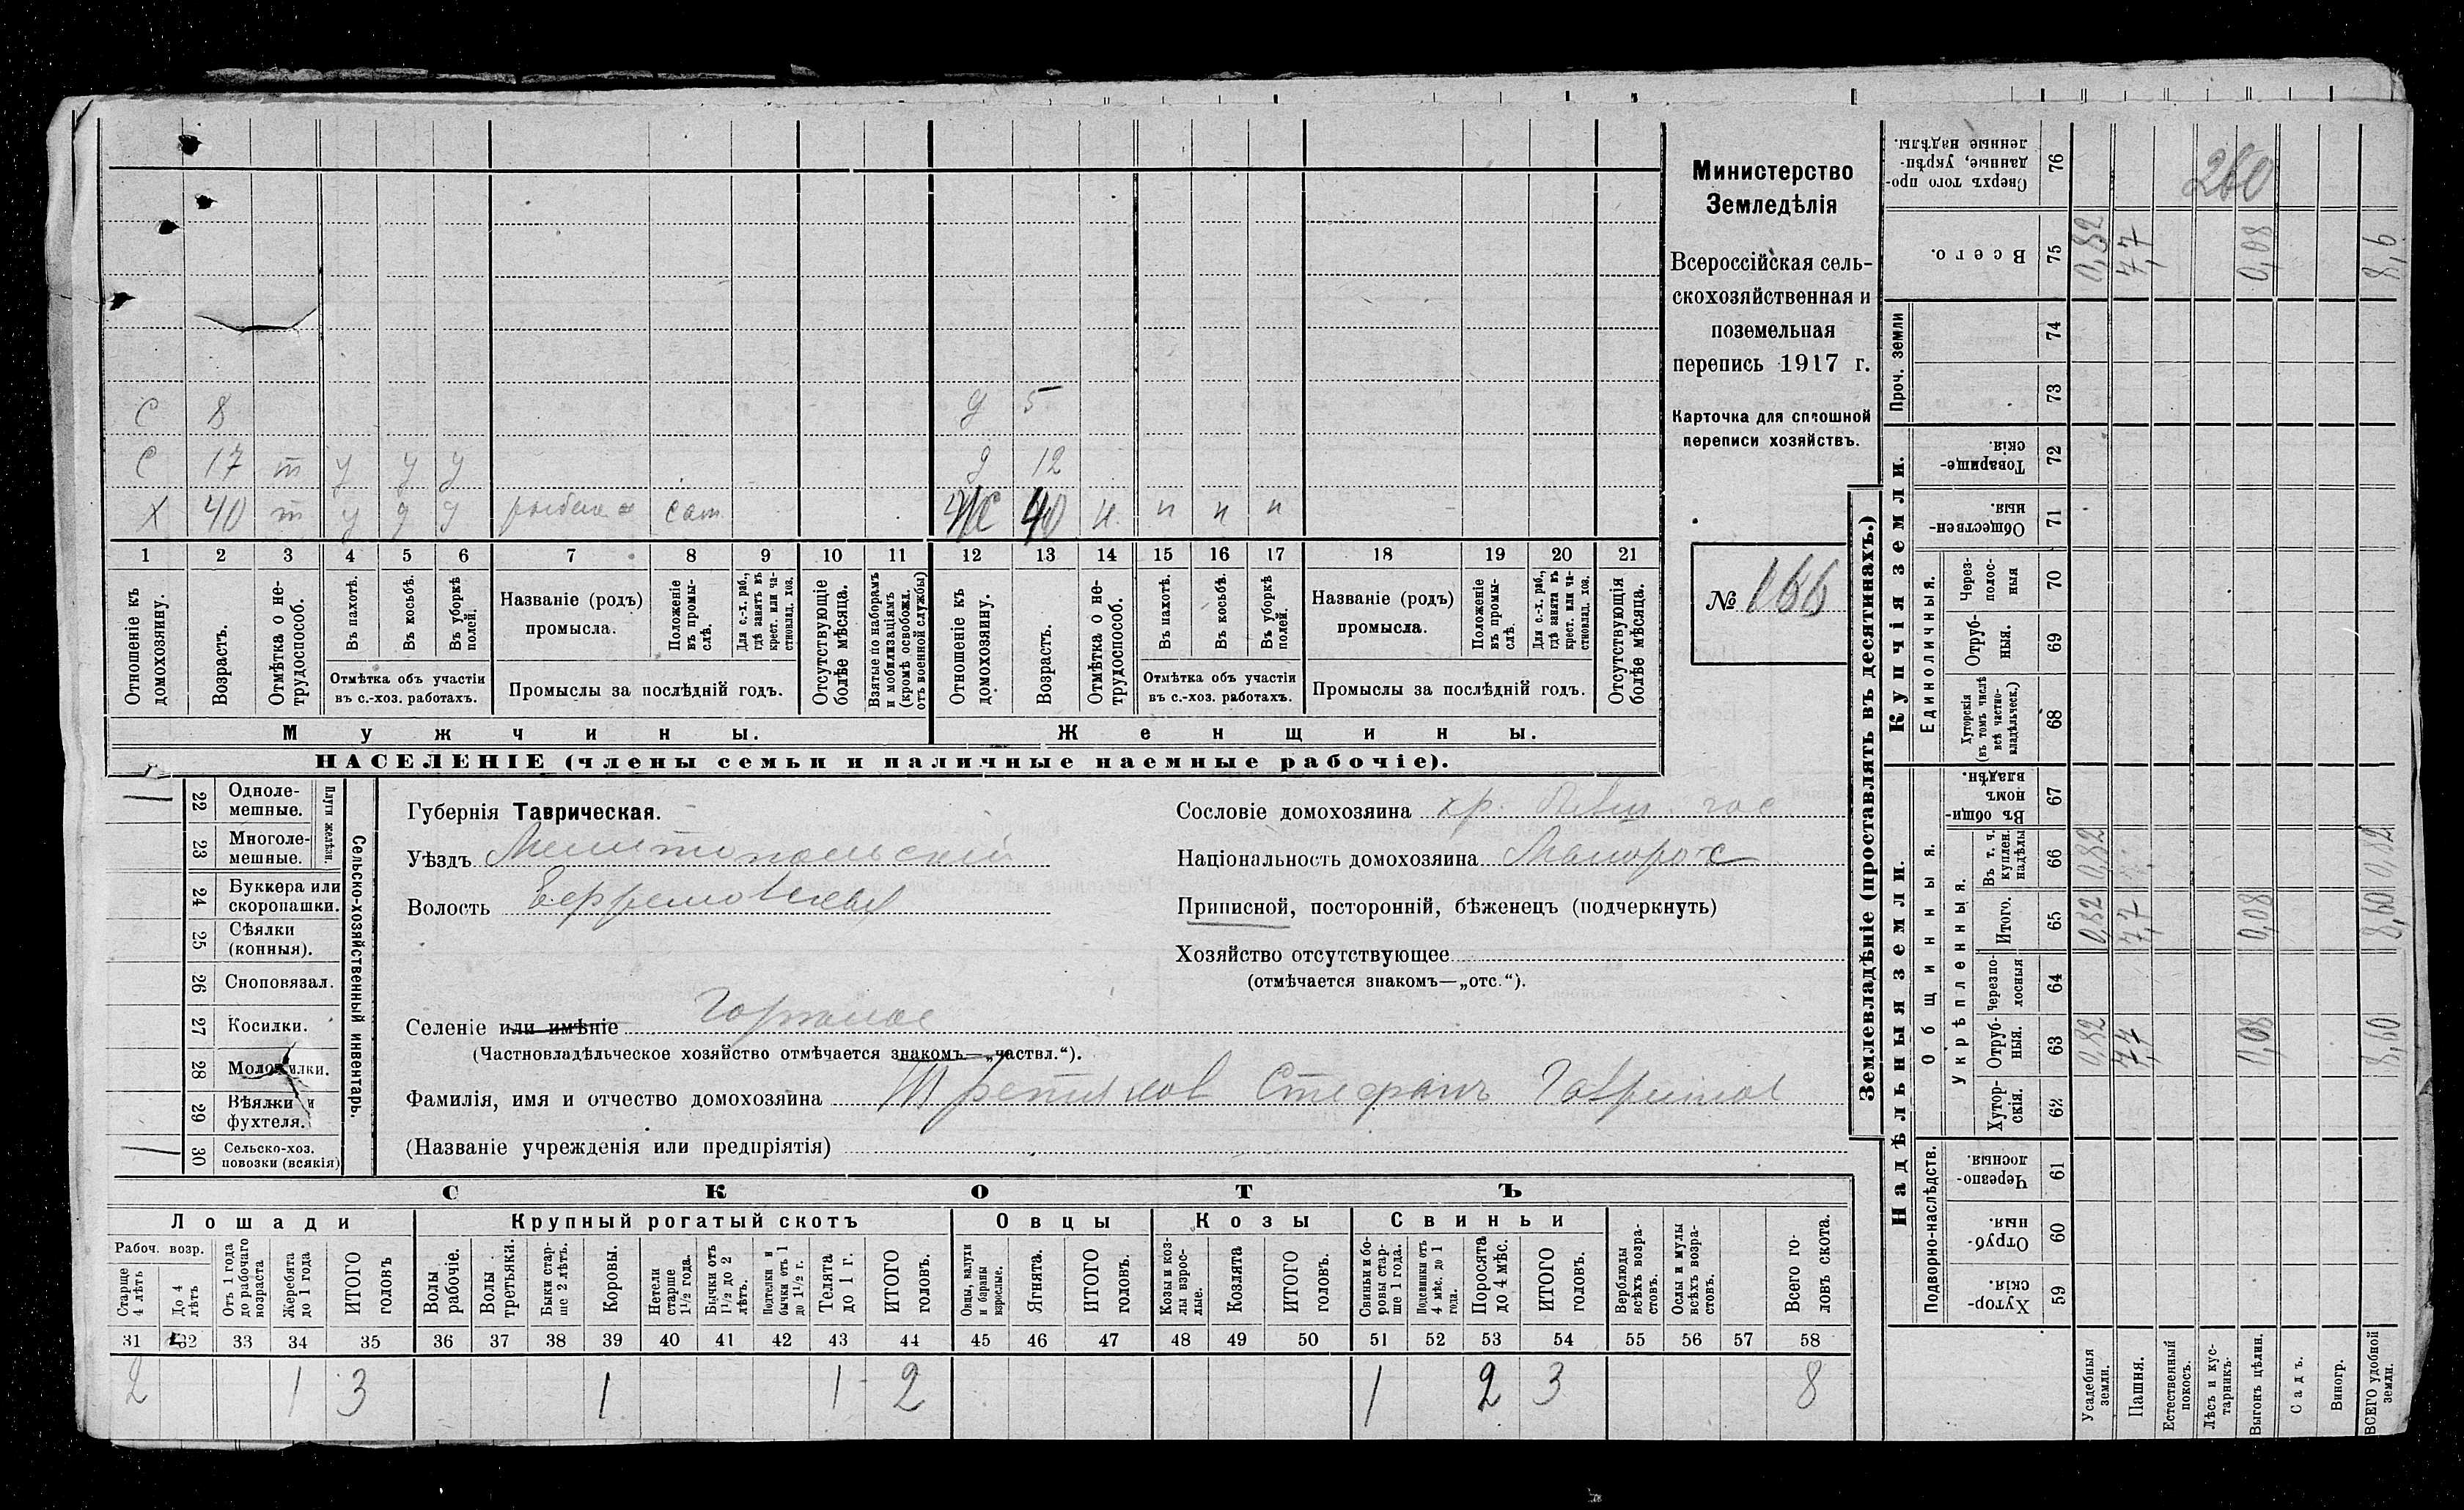 Министерство
Земледѣлія
Всероссійская сель-
скохозяйственная и
поземельная
перепись 1917 г.
Карточка для сплошной
переписи хозяйствъ.
№ 166
С 8
С 17 т у у у
Х 40 т у у у сам
д 5
д 12
Ж 40 н. п п п
1 2 3 4 5 6 7 8 9 10 11 12 13 14 15 16 17 18 19 20 21
Отношеніе къ домохозяину.
Возрастъ.
Отмѣтка о не-трудоспособ.
Въ пахотѣ.
Въ косьбѣ.
Въ уборкѣ полей.
Отмѣтка объ участіи
въ с.-хоз. работахъ.
Названіе (родъ)
промысла.
Положеніе въ промы-слѣ.
Для с.-х. раб., гдѣ занятъ въ крест. или ча-стновлад. хоз.
Промыслы за послѣдній годъ.
Отсутствующіе болѣе мѣсяца.
Взятые по наборамъ и мобилизаціямъ (кромѣ освобожд. отъ военной службы)
Отношеніе къ домохозяину.
Возрастъ.
Отмѣтка о не-трудоспособ.
Въ пахотѣ.
Въ косьбѣ.
Въ уборкѣ полей.
Отмѣтка объ участіи
въ с.-хоз. работахъ.
Названіе (родъ)
промысла.
Положеніе въ промы-слѣ.
Для с.-х. раб., гдѣ занята въ крест. или ча-стновлад. хоз.
Промыслы за послѣдній годъ.
Отсутствующія болѣе мѣсяца.
Мужчины.
Женщины.
НАСЕЛЕНІЕ (члены семьи и наличные наемные рабочіе).
Сельско-хозяйственный инвентарь.
Плуги желѣзн.
22 Одноле-мешные.
23 Многоле-мешные.
24 Буккера или скоропашки.
25 Сѣялки (конныя).
26 Сноповязал.
27 Косилки.
28 Молотилки.
29 Вѣялки и фухтеля.
30 Сельско-хоз. повозки (всякія)
Губернія Таврическая.
Уѣздъ Мелитопольскій
Волость Ефремовская
Селеніе или имѣніе
(Частновладѣльческое хозяйство отмѣчается знакомъ—„частвл.“).
Фамилія, имя и отчество домохозяина Третяков Стефанъ Гаврилов
(Названіе учрежденія или предпріятія)
Сословіе домохозяина кр.
Національность домохозяина Малорос
Приписной, посторонній, бѣженецъ (подчеркнуть)
Хозяйство отсутствующее
(отмѣчается знакомъ—„отс.“).
СКОТЪ
Лошади
Рабоч. возр.
Старше 4 лѣтъ
До 4 лѣтъ
Отъ 1 года до рабочаго возраста
Жеребята до 1 года
ИТОГО головъ
Крупный рогатый скотъ
Волы рабочіе.
Волы третьяки.
Быки стар-ше 2 лѣтъ.
Коровы.
Нетели старше 1½ года.
Бычки отъ 1½ до 2 лѣтъ.
Подтелки и бычки отъ 1 до 1½ г.
Телята до 1 г.
ИТОГО головъ.
Овцы
Овцы, валухи и бараны взрослые.
Ягнята.
ИТОГО головъ.
Козы
Козы и коз-лы взрос-лые.
Козлята
ИТОГО головъ.
Свиньи
Свиньи и бо-ровы стар-ше 1 года.
Подсвинки отъ 4 мѣс. до 1 года.
Поросята до 4 мѣс.
ИТОГО головъ.
Верблюды всѣхъ возра-стовъ.
Ослы и мулы всѣхъ возра-стовъ.
Всего го-ловъ скота.
31 32 33 34 35 36 37 38 39 40 41 42 43 44 45 46 47 48 49 50 51 52 53 54 55 56 57 58
2 1 3 1 1 2 1 2 3 8
Землевладѣніе (проставлять въ десятинахъ.)
Надѣльныя земли.
Подворно-наслѣдств.
Хутор-скія. 59
Отруб-ныя. 60
Черезпо-лосныя. 61
Общинныя.
Укрѣпленныя.
Хутор-скія. 62
Отруб-ныя. 63 0,82 7,7 0,08 8,60
Черезпо-лосныя 64
Итого. 65 0,82 7,7 0,08 8,60
Въ т. ч. куплен. надѣлы 66 0,82 0,82
Въ общи-номъ владѣн. 67
Купчія земли.
Единоличныя.
Хуторскія (въ томъ числѣ всѣ частно-владѣльческ.) 68
Отруб-ныя. 69
Через-полос-ныя 70
Обществен-ныя. 71
Товарище-скія 72
Проч. земли
73
74
Всего. 75 0,82 7,7 0,08 8,6
Сверхъ того про-данные, укрѣп-ленные надѣлы. 76
260
Усадебныя земли.
Пашня.
Естественный покосъ.
Лѣсъ и кус-тарникъ.
Выгонъ цѣлин.
Садъ.
Виногр.
ВСЕГО удобной земли.